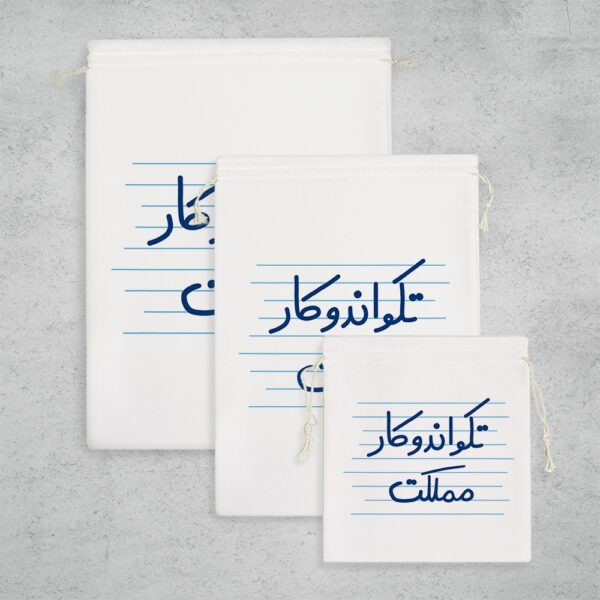 تکواندوکار
تکواندوکار
مملکت